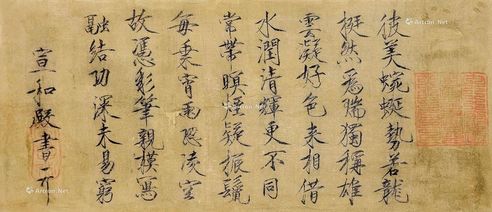 彼美蜿蜒勢若龍
挺然為瑞獨稱雄
雲凝好色来相借
水潤清輝更不同
常帶暝煙疑振鬣
每乗宵雨恐凌空
故憑彩筆親模寫
融結功深未易窮
宣和殿書